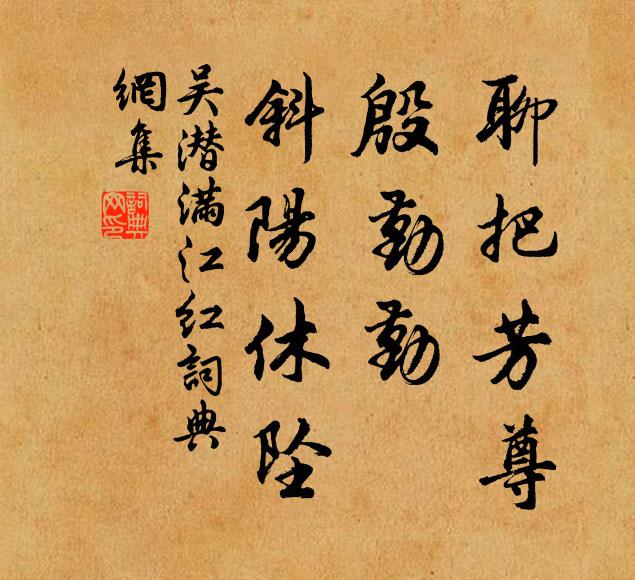 聊把芳尊
殷勤勤
斜陽休墜
吴潜满江红詞典
網集
詞典